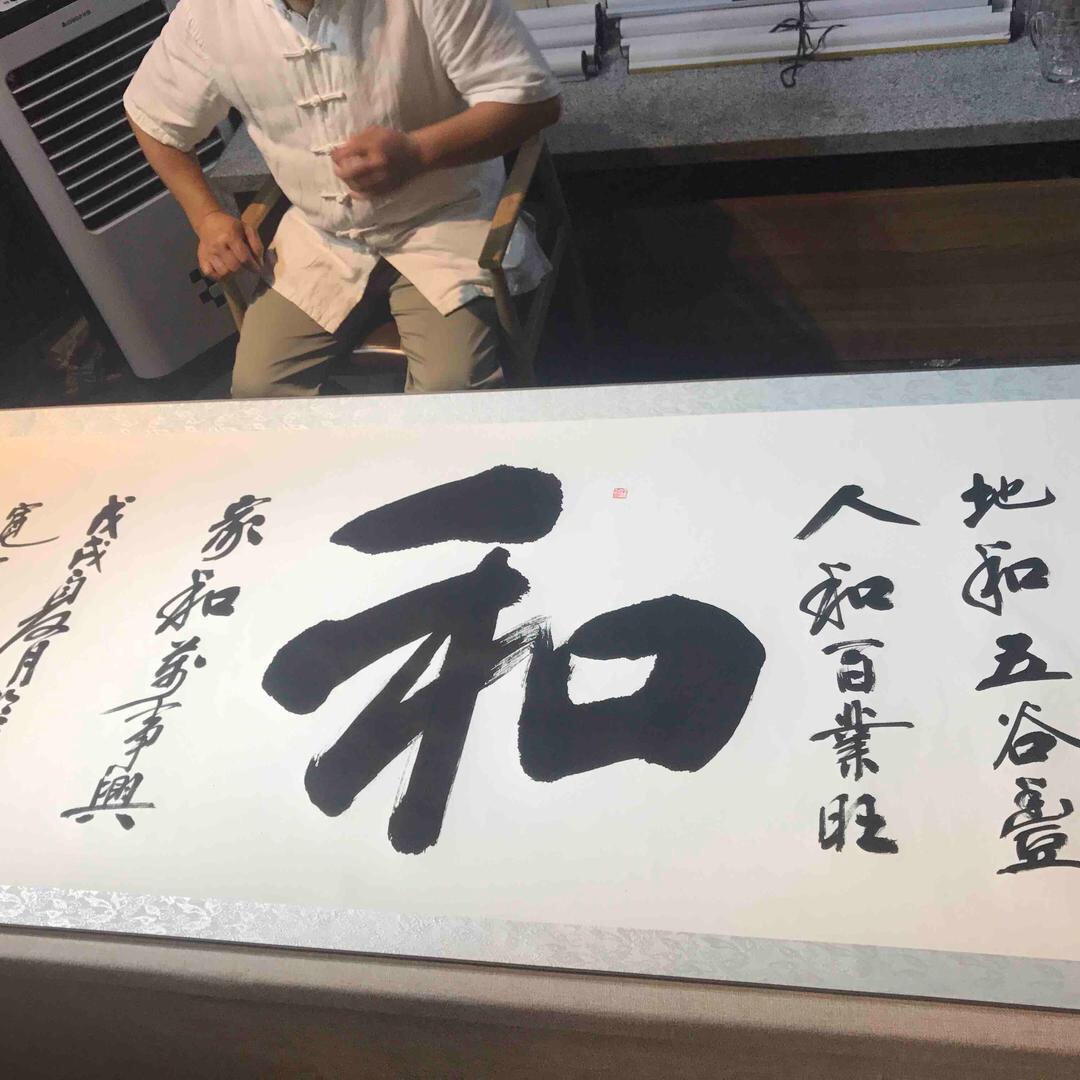 地和五谷豐
人和百業旺
和
家和萬事興
戊戌自友月